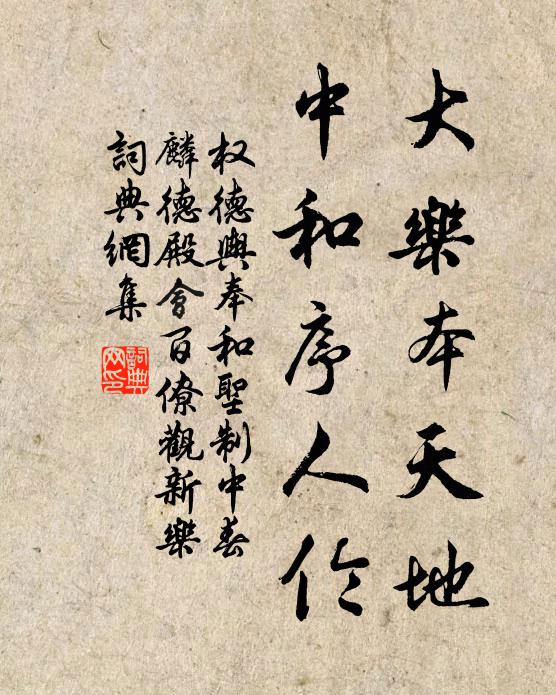 大樂本天地
中和序人伦
权德輿奉和聖制中春
麟德殿會百僚觀新樂
詞典網集
詞典网印